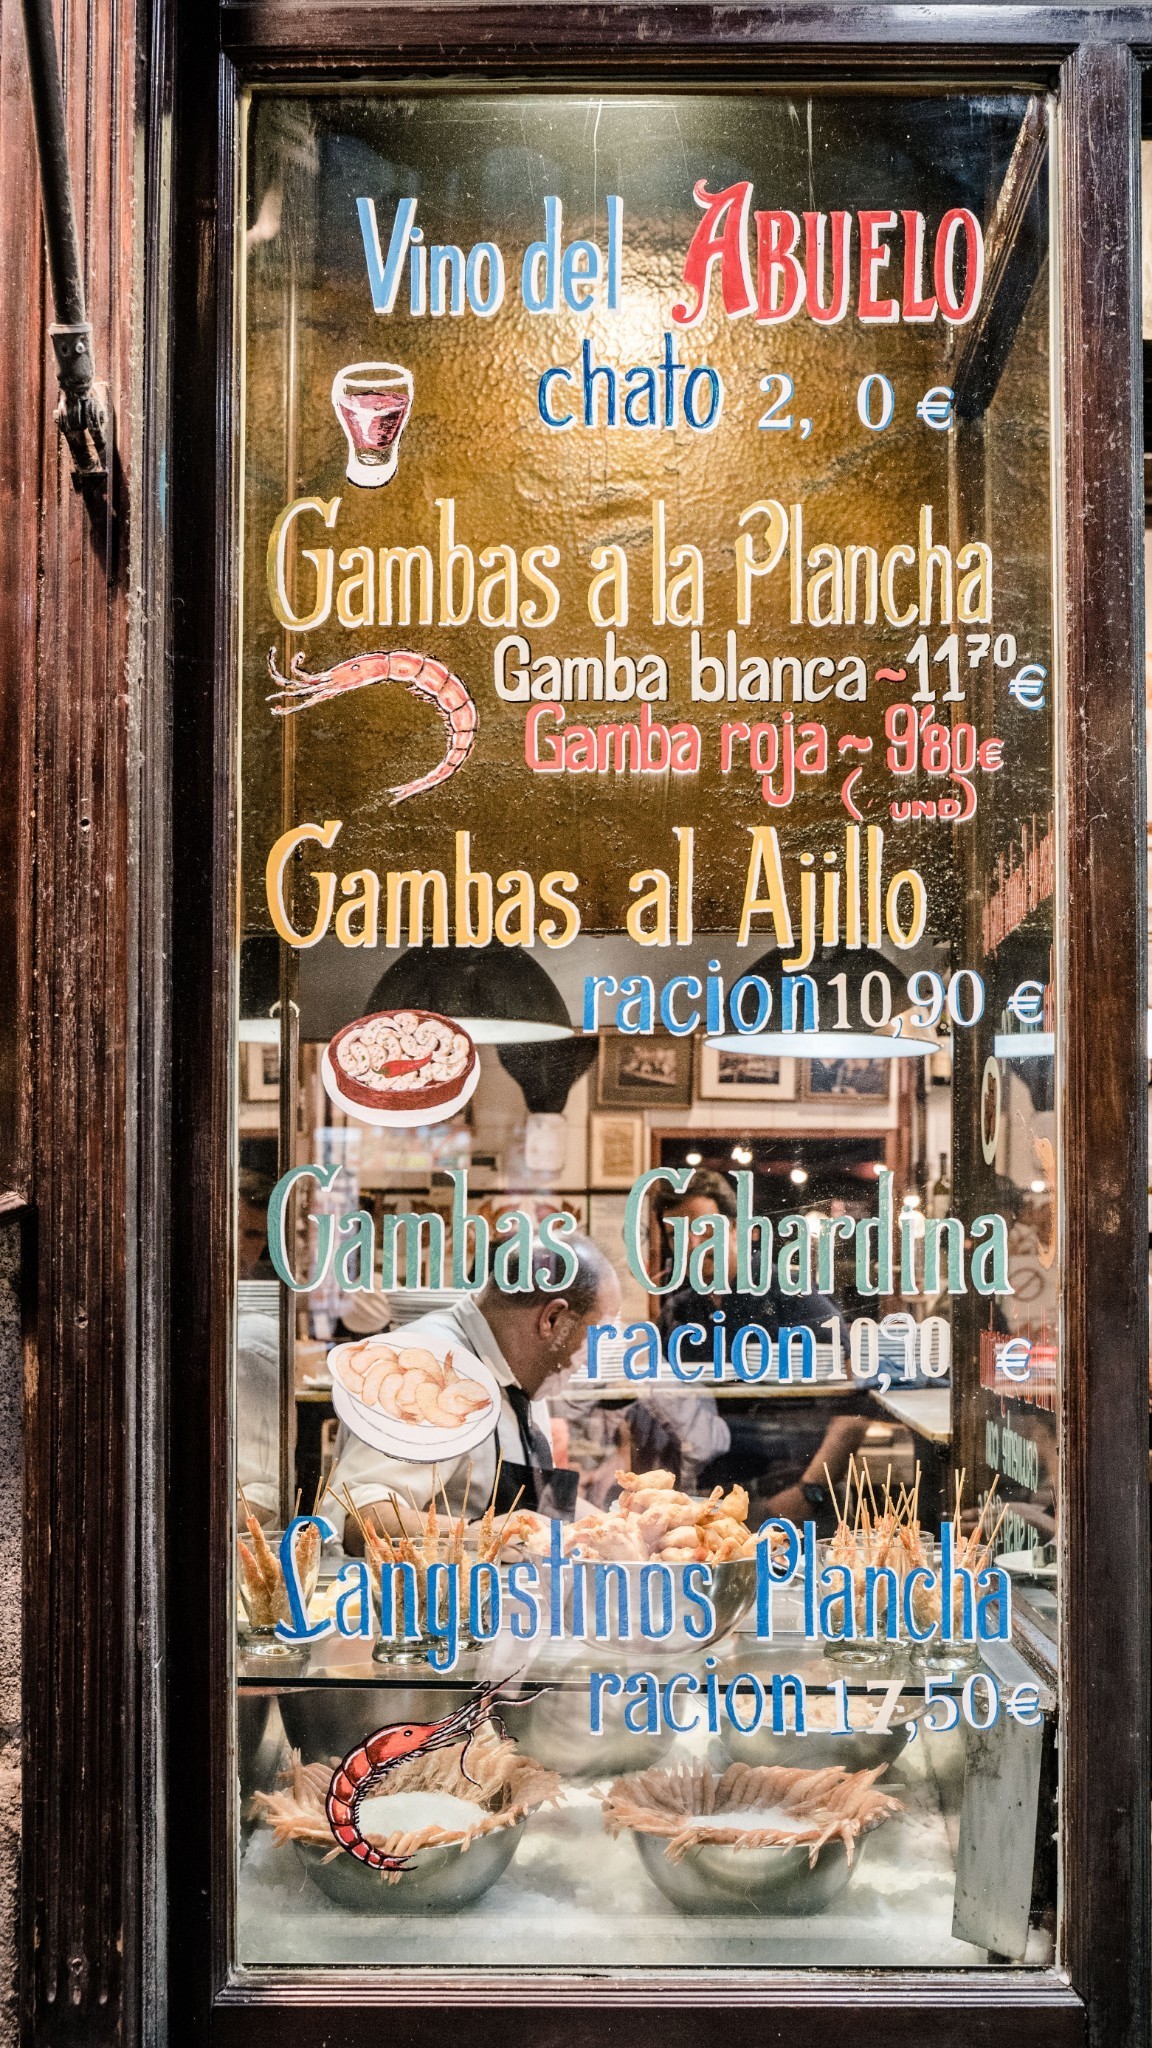 Vino del ABUELO
chato 2, 0 €
Gambas a la Plancha
Gamba blanca ~ 11⁷⁰ €
Gamba roja ~ 9'80 €
( UND)
Gambas al Ajillo
racion 10,90 €
Gambas Gabardina
racion 10,90 €
Langostinos Plancha
racion 17,50 €